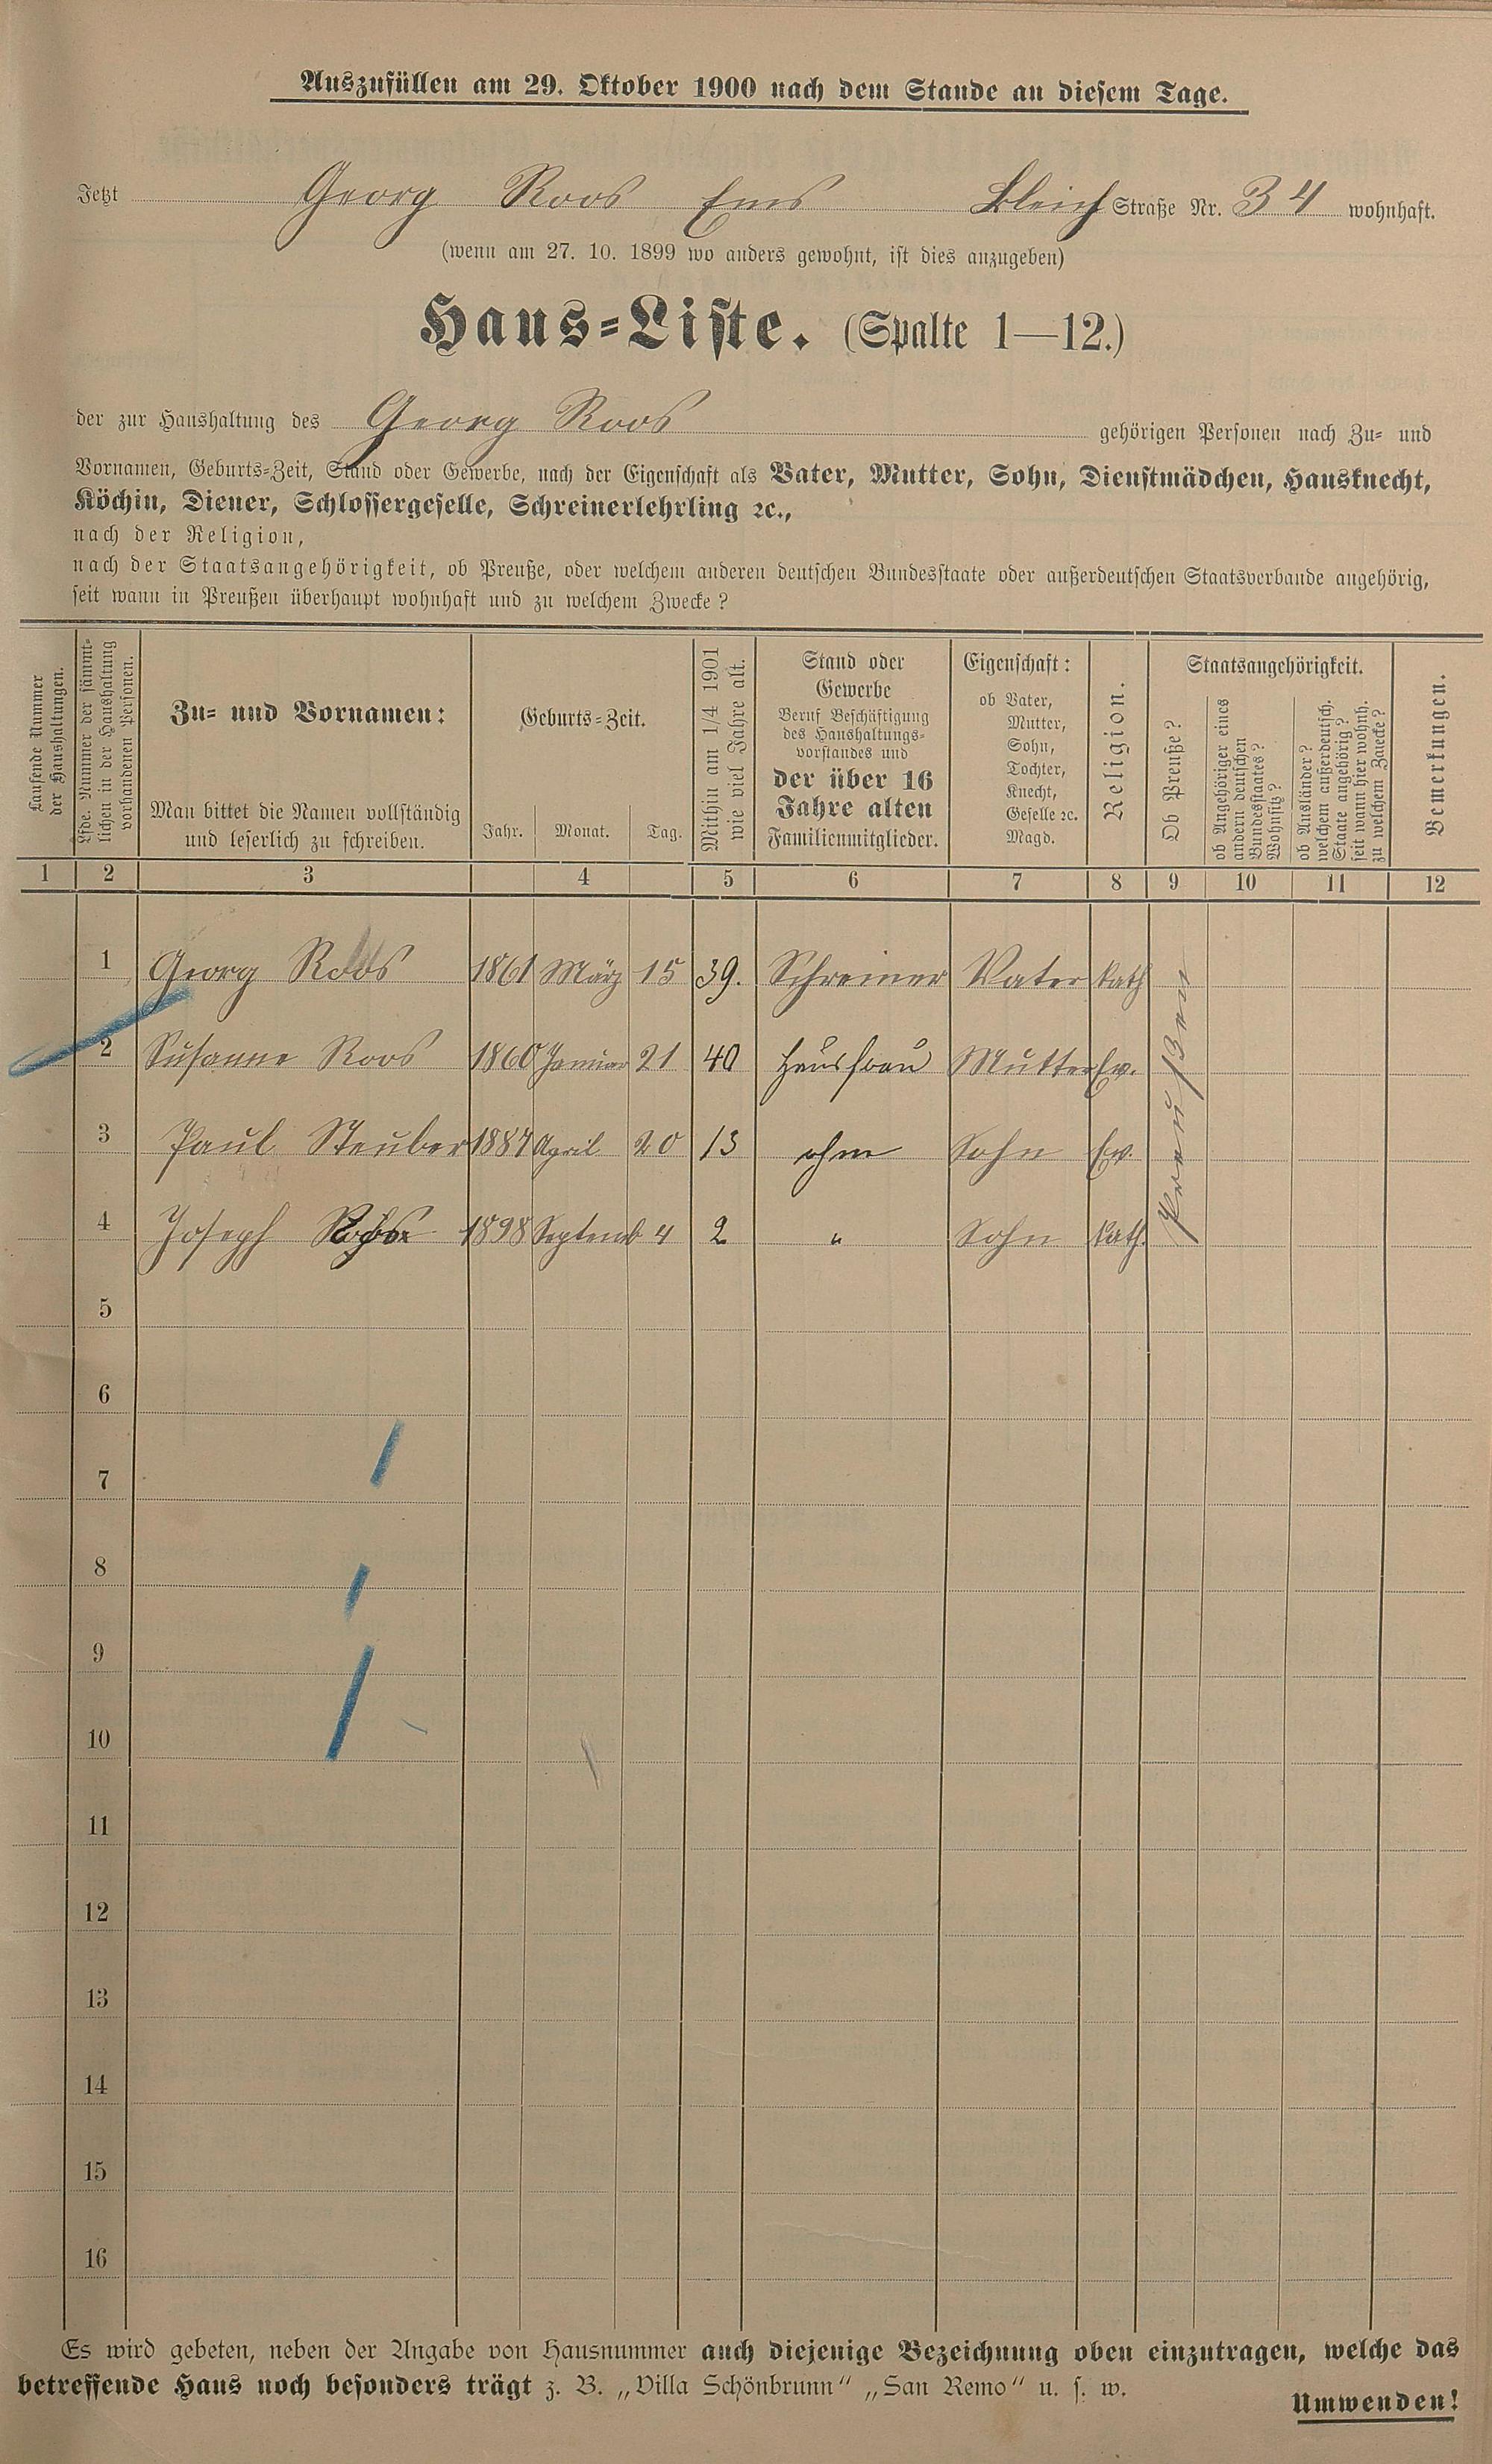 Auszufüllen am 29. Oktober 1900 nach dem Stande an diesem Tage.
Jetzt Georg Roos Ems Bleich Straße Nr. 34 wohnhaft.
(wenn am 27. 10. 1899 wo anders gewohnt, ist dies anzugeben)
Haus=Liste. (Spalte 1—12.)
der zur Haushaltung des Georg Roos gehörigen Personen nach Zu= und
Vornamen, Geburts=Zeit, Stand oder Gewerbe, nach der Eigenschaft als Vater, Mutter, Sohn, Dienstmädchen, Hausknecht,
Köchin, Diener, Schlossergeselle, Schreinerlehrling ꝛc.,
nach der Religion,
nach der Staatsangehörigkeit, ob Preuße, oder welchem anderen deutschen Bundesstaate oder außerdeutschen Staatsverbande angehörig,
seit wann in Preußen überhaupt wohnhaft und zu welchem Zwecke?
Laufende Nummer
der Haushaltungen.
Lfde. Nummer der sämmt=
lichen in der Haushaltung
vorhandenen Personen.
Zu= und Vornamen:
Man bittet die Namen vollständig
und leserlich zu schreiben.
Geburts=Zeit.
Jahr. Monat. Tag.
Mithin am 1/4 1901
wie viel Jahre alt.
Stand oder
Gewerbe
Beruf Beschäftigung
des Haushaltungs=
vorstandes und
der über 16
Jahre alten
Familienmitglieder.
Eigenschaft:
ob Vater,
Mutter,
Sohn,
Tochter,
Knecht,
Geselle ꝛc.
Magd.
Religion.
Staatsangehörigkeit.
Ob Preuße?
ob Angehöriger eines
andern deutschen
Bundesstaates?
Wohnsitz?
ob Ausländer?
welchem außerdeutsch.
Staate angehörig?
seit wann hier wohnh.
zu welchem Zwecke?
Bemerkungen.
1 2 3 4 5 6 7 8 9 10 11 12
1 Georg Roos 1861 März 15 39. Schreiner Vater kath
2 Susanne Roos 1860 Januar 21 40 Hausfrau Mutter Ev.
3 Paul Steuber 1887 April 20 13 ohne Sohn Ev.
4 Joseph Roos 1898 Septemb 4 2 " Sohn kath.
Preußen
5
6
7
8
9
10
11
12
13
14
15
16
Es wird gebeten, neben der Angabe von Hausnummer auch diejenige Bezeichnung oben einzutragen, welche das
betreffende Haus noch besonders trägt z. B. „Villa Schönbrunn" „San Remo" u. s. w.
Umwenden!